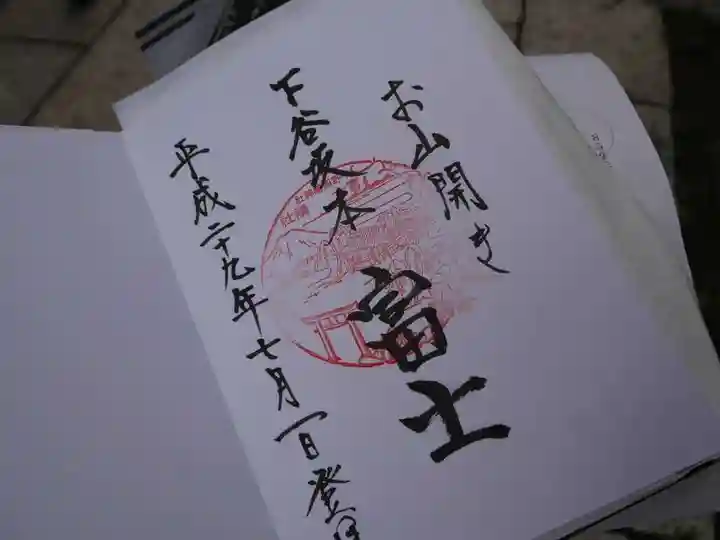 お山開き
下谷坂本
富士
平成二十九年七月一日登